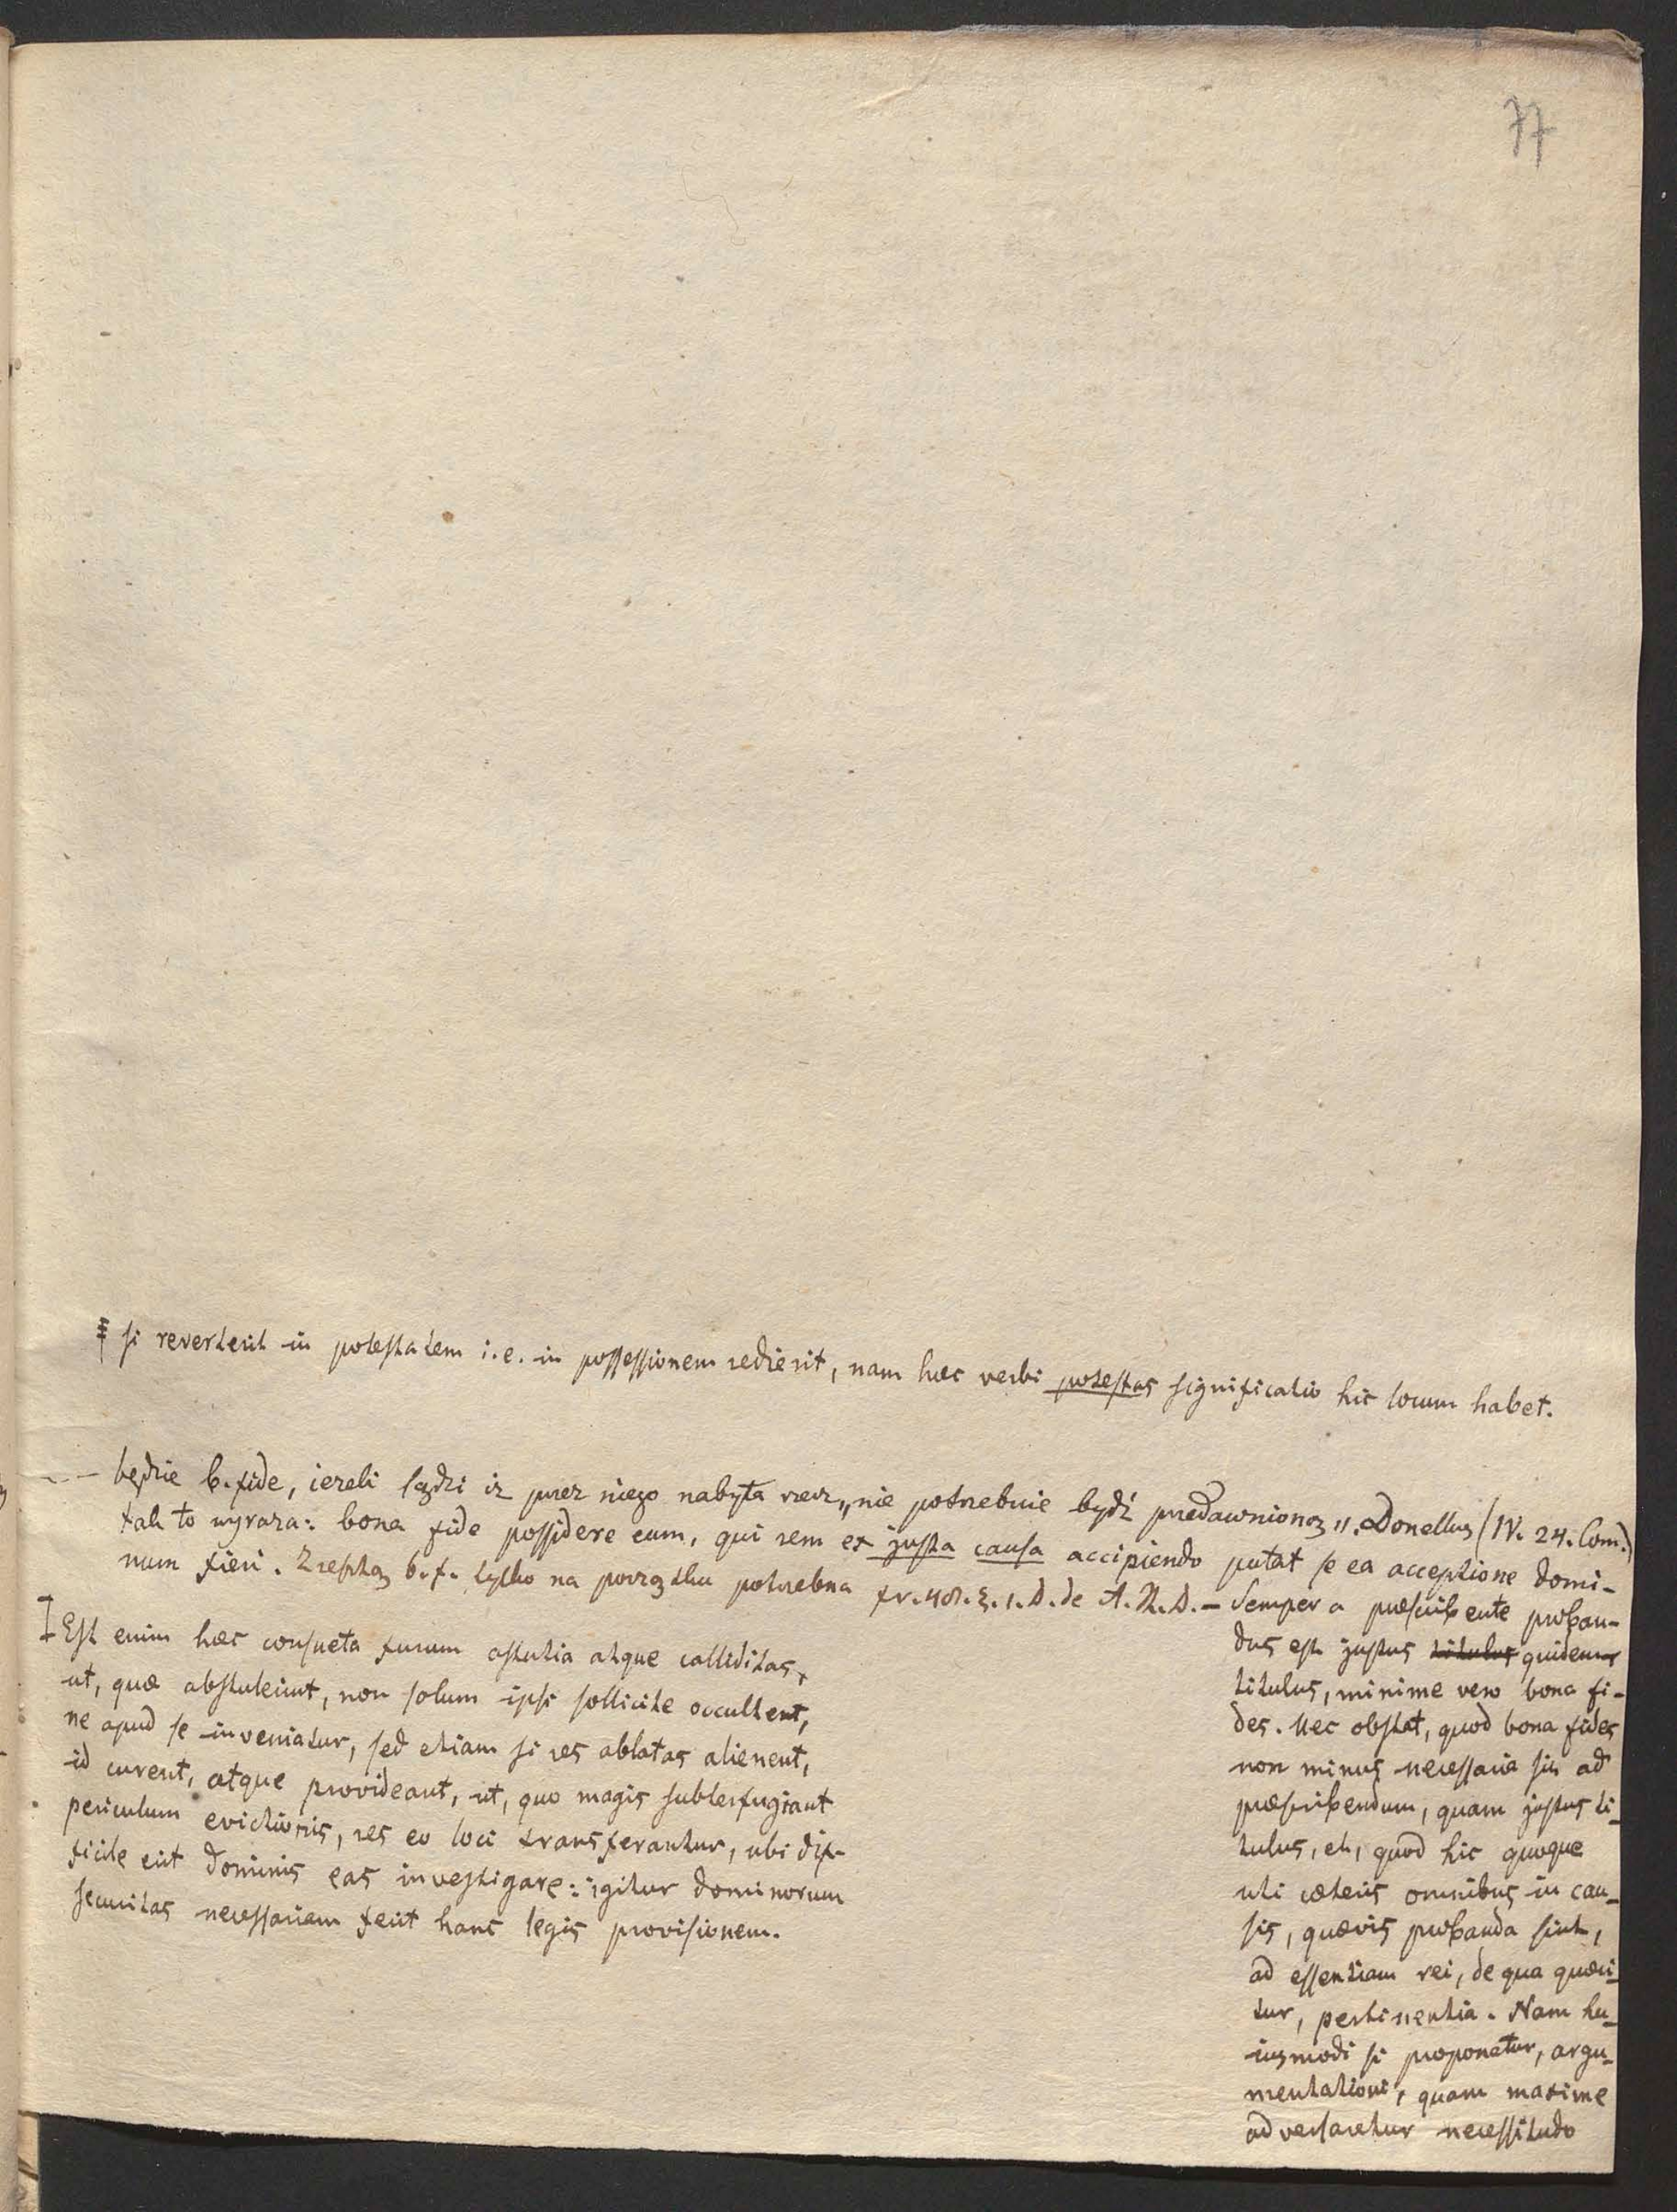 77
si reverterit in potestatem i.e. in possessionem redierit, nam hæc verbi potestas significatio hic locum habet.
będzie b. fide, ieżeli sądzi iż przez niego nabyta rzecz „nie potrzebuie bydź przedawnioną". Donellus (IV. 24. Com.)
tak to wyraża: bona fide possidere eum, qui rem ex justa causa accipiendo putat se ea acceptione domi-
num fieri. Zresztą b. f. tylko na początku potrzebna fr. 48. §. 1. D. de A. R. D. — Semper a præscribente proban-
dus est justus titulus quidem
titulus, minime vero bona fi-
des. Nec obstat, quod bona fides
non minus necessaria sit ad
præscribendum, quam justus ti-
tulus, et, quod hic quoque
uti cæteris omnibus in cau-
sis, quævis probanda sint,
ad essentiam rei, de qua quæri-
tur, pertinentia. Nam hu-
iusmodi si proponatur, argu-
mentationi, quam maxime
adversaretur necessitudo
Est enim hæc consueta furum astutia atque calliditas,
ut, quæ abstulerint, non solum ipsi sollicite occultent,
ne apud se inveniatur, sed etiam si res ablatas alienent,
id curent, atque provideant, ut, quo magis subterfugiant
periculum evictionis, res eo loci transferantur, ubi dif-
ficile erit dominis eas investigare: igitur dominorum
securitas necessariam fecit hanc legis provisionem.